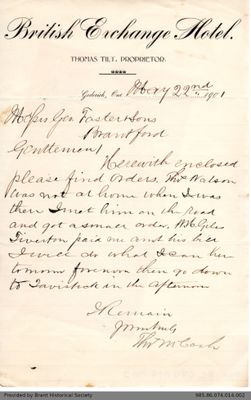 British Exchange Hotel.
THOMAS TILT, PROPRIETOR.
Goderich, Ont. May 22nd 1901
Messrs Geo Foster & Sons
Brantford
Gentlemen
Herewith enclosed
please find orders, Thos Watson
was not at home when I was
there I met him on the Road
and got a small order, W.H. Giles
Tiverton paid me and his her
I will do what I can her
tomorrow forenoon then go down
to Tavistock in the afternoon
I Remain
Yours truly
Thos McCosh
Provided by Brant Historical Society
985.86.074.016.002